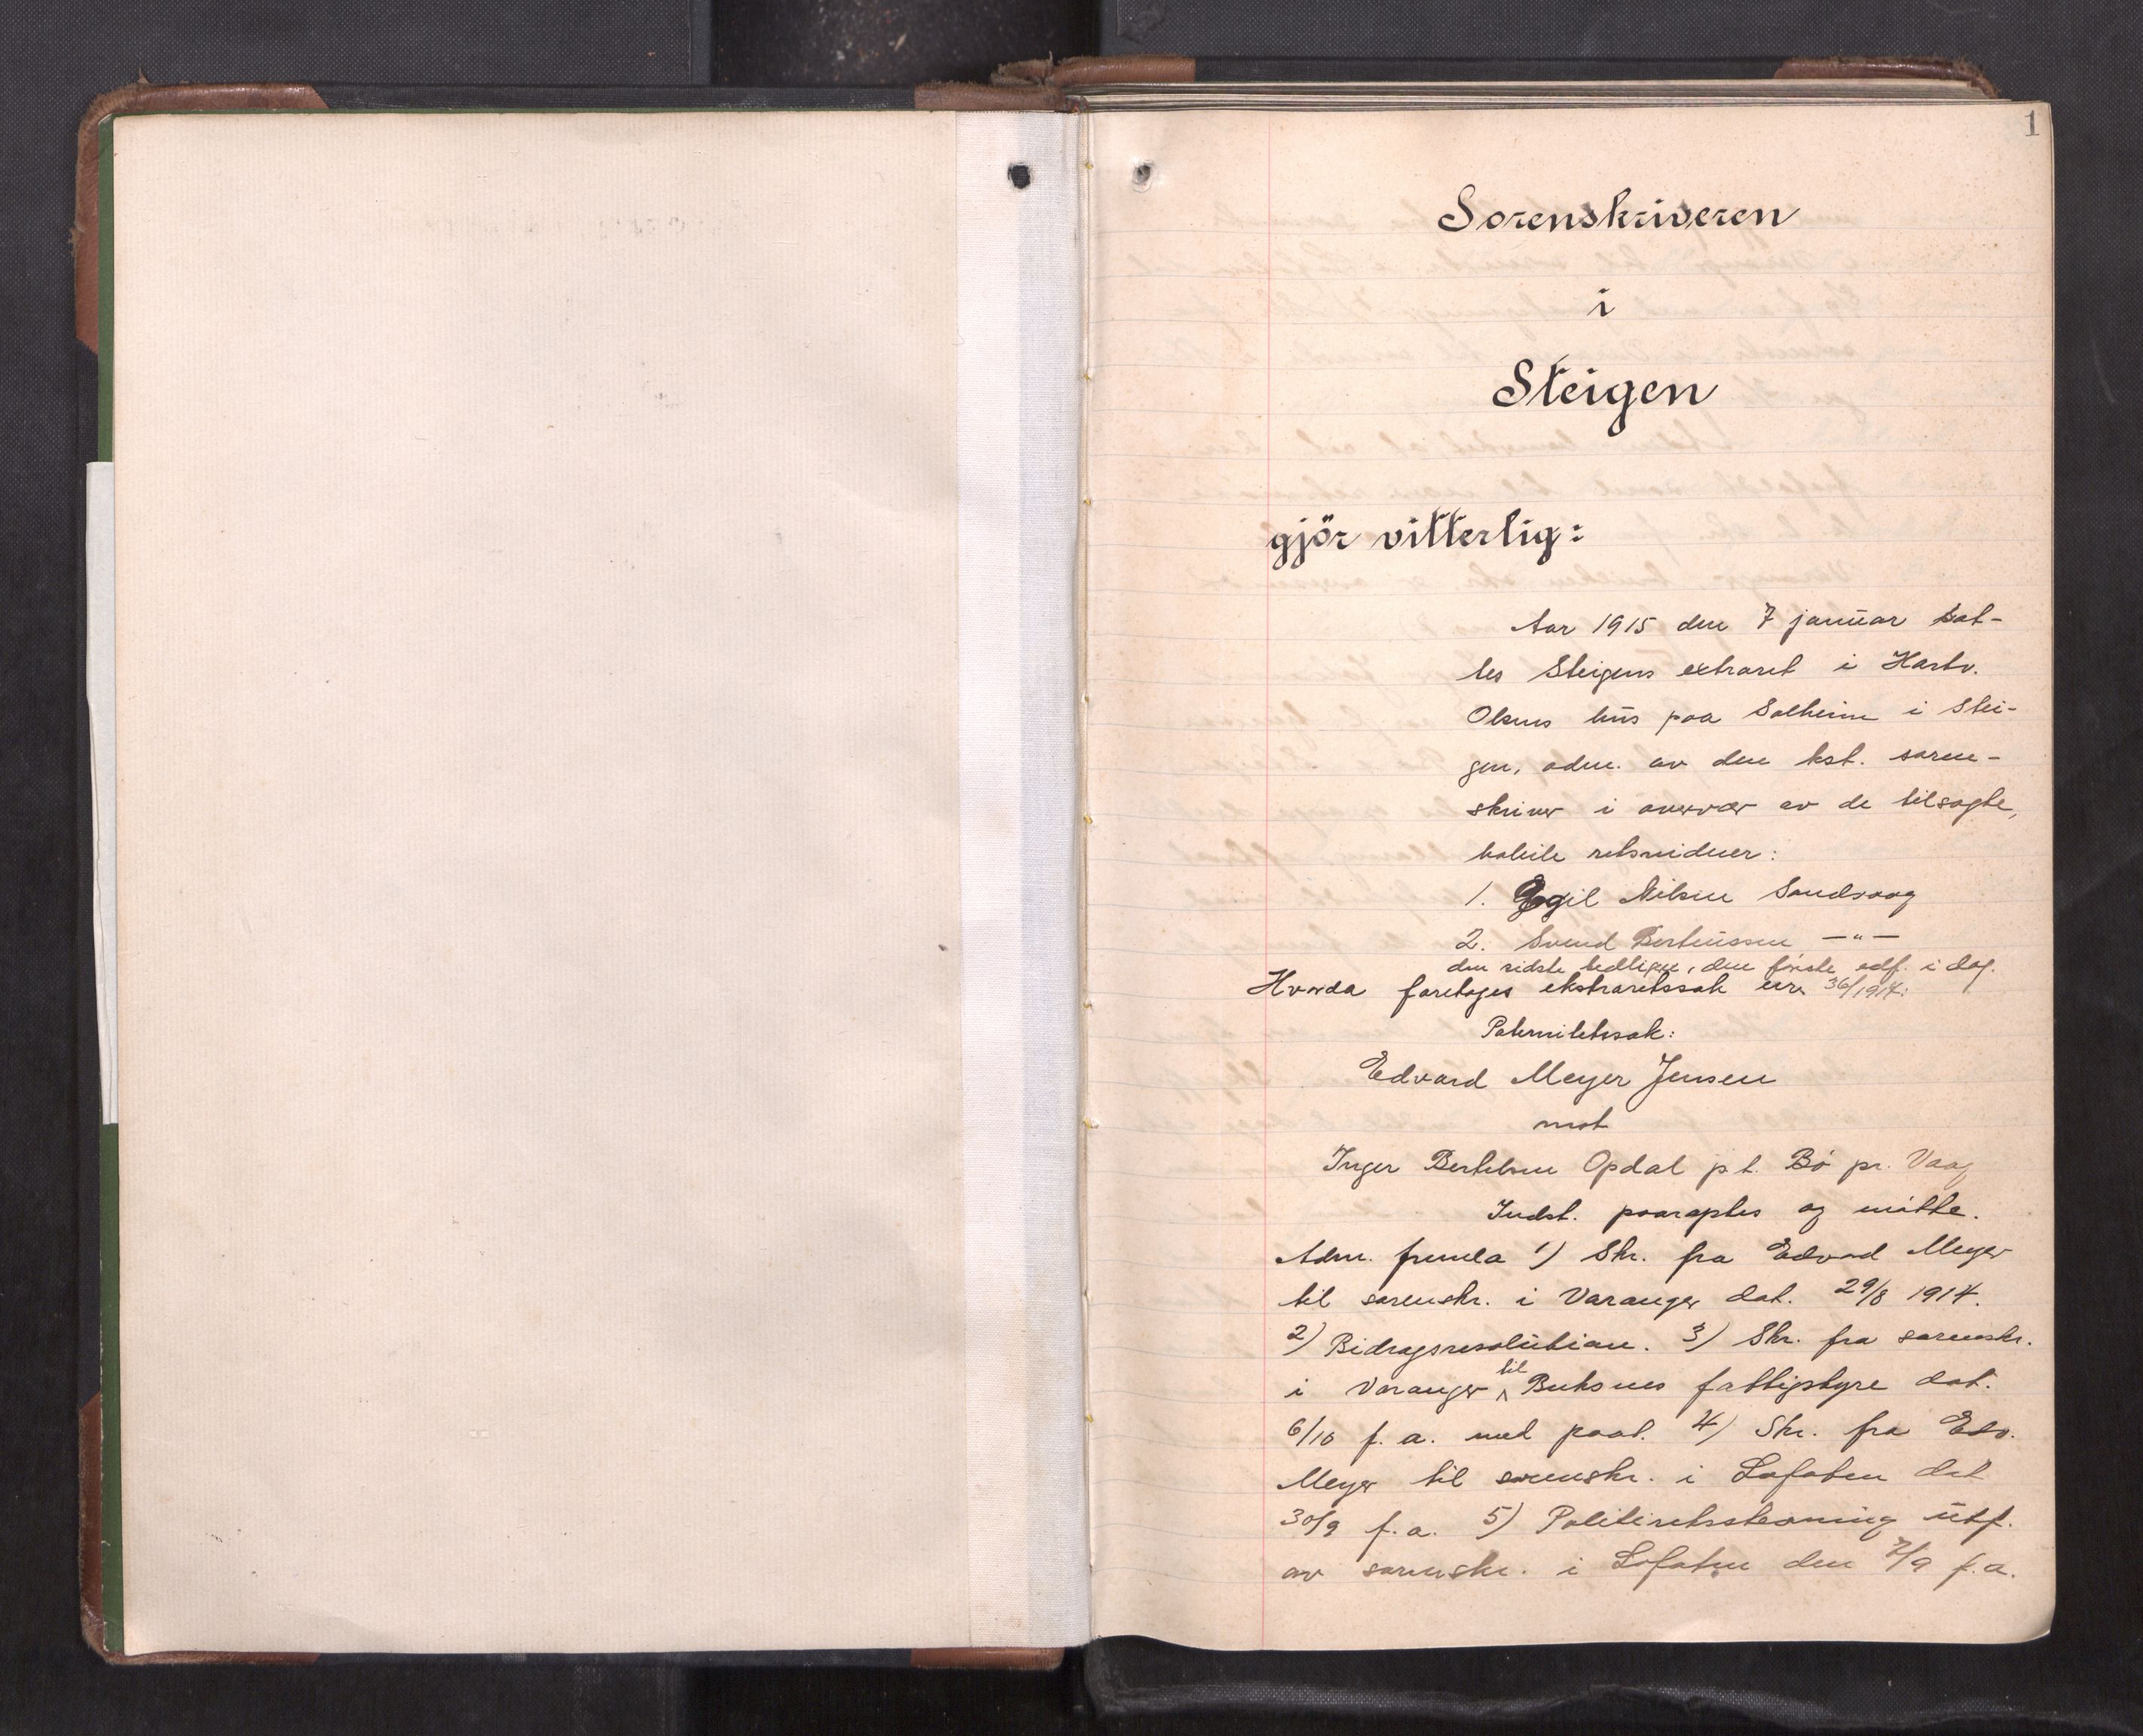 1
Sorenskriveren
i
Steigen
gjör vitterlig:
Aar 1915 den 7 januar sat-
tes Steigens extraret i Hartv.
Olsens hus paa Solheim i Stei-
gen, adm. av den kst. soren-
skriver i overvær av de tilsagte,
habile retsvidner:
1. Egil Nilsen Sandvaag
2. Svend Bertinussen —"—
den sidste edlign, den første edf. i dag.
Hvorda foretoges ekstraretssak nr. 36/1914:
Paternitetssak:
Edvard Meyer Jensen
mot
Inger Bertelsen Opdal p.t. Bö pr. Vaag
Indst. paaroptes og mötte.
Adm. fremla 1) Skr. fra Edvard Meyer
til sorenskr. i Varanger dat. 29/8 1914.
2) Bidragsresolution. 3) Skr. fra sorenskr.
i Varanger til Buksnes fattigstyre dat.
6/10 f. a. med paat. 4) Skr. fra Edv.
Meyer til sorenskr. i Lofoten dat
30/9 f. a. 5) Politiretsstevning utf.
av sorenskr. i Lofoten den 7/9 f. a.